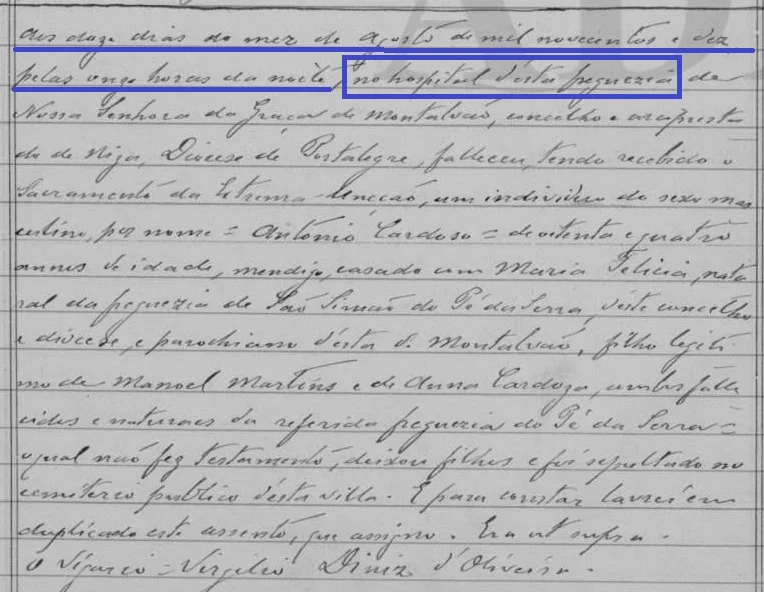 Aos doze dias do mez de Agosto de mil novecentos e dez
pelas onze horas da noite, no hospital d'esta freguezia de
Nossa Senhora da Graça de Montalvão, concelho e arcipresta
do de Niza, Diocese de Portalegre, falleceu, tendo recebido o
Sacramento da Extrema-Uncção, um individuo do sexo mas
culino, por nome = Antonio Cardoso = de oitenta e quatro
annos de idade, mendigo, casado com Maria Felicia, natu
ral da freguezia de São Simão do Pé da Serra, d'este concelho
e diocese, e parochiano d'esta de Montalvão, filho legiti
mo de Manoel Martins e de Anna Cardoza, ambos falle
cidos e naturaes da referida freguezia do Pé da Serra =
o qual não fez testamento, deixou filhos e foi sepultado no
cemiterio publico d'esta villa. E para constar lavrei em
duplicado este assento, que assigno. Era ut supra.
O Vigario = Virgilio Diniz d'Oliveira.